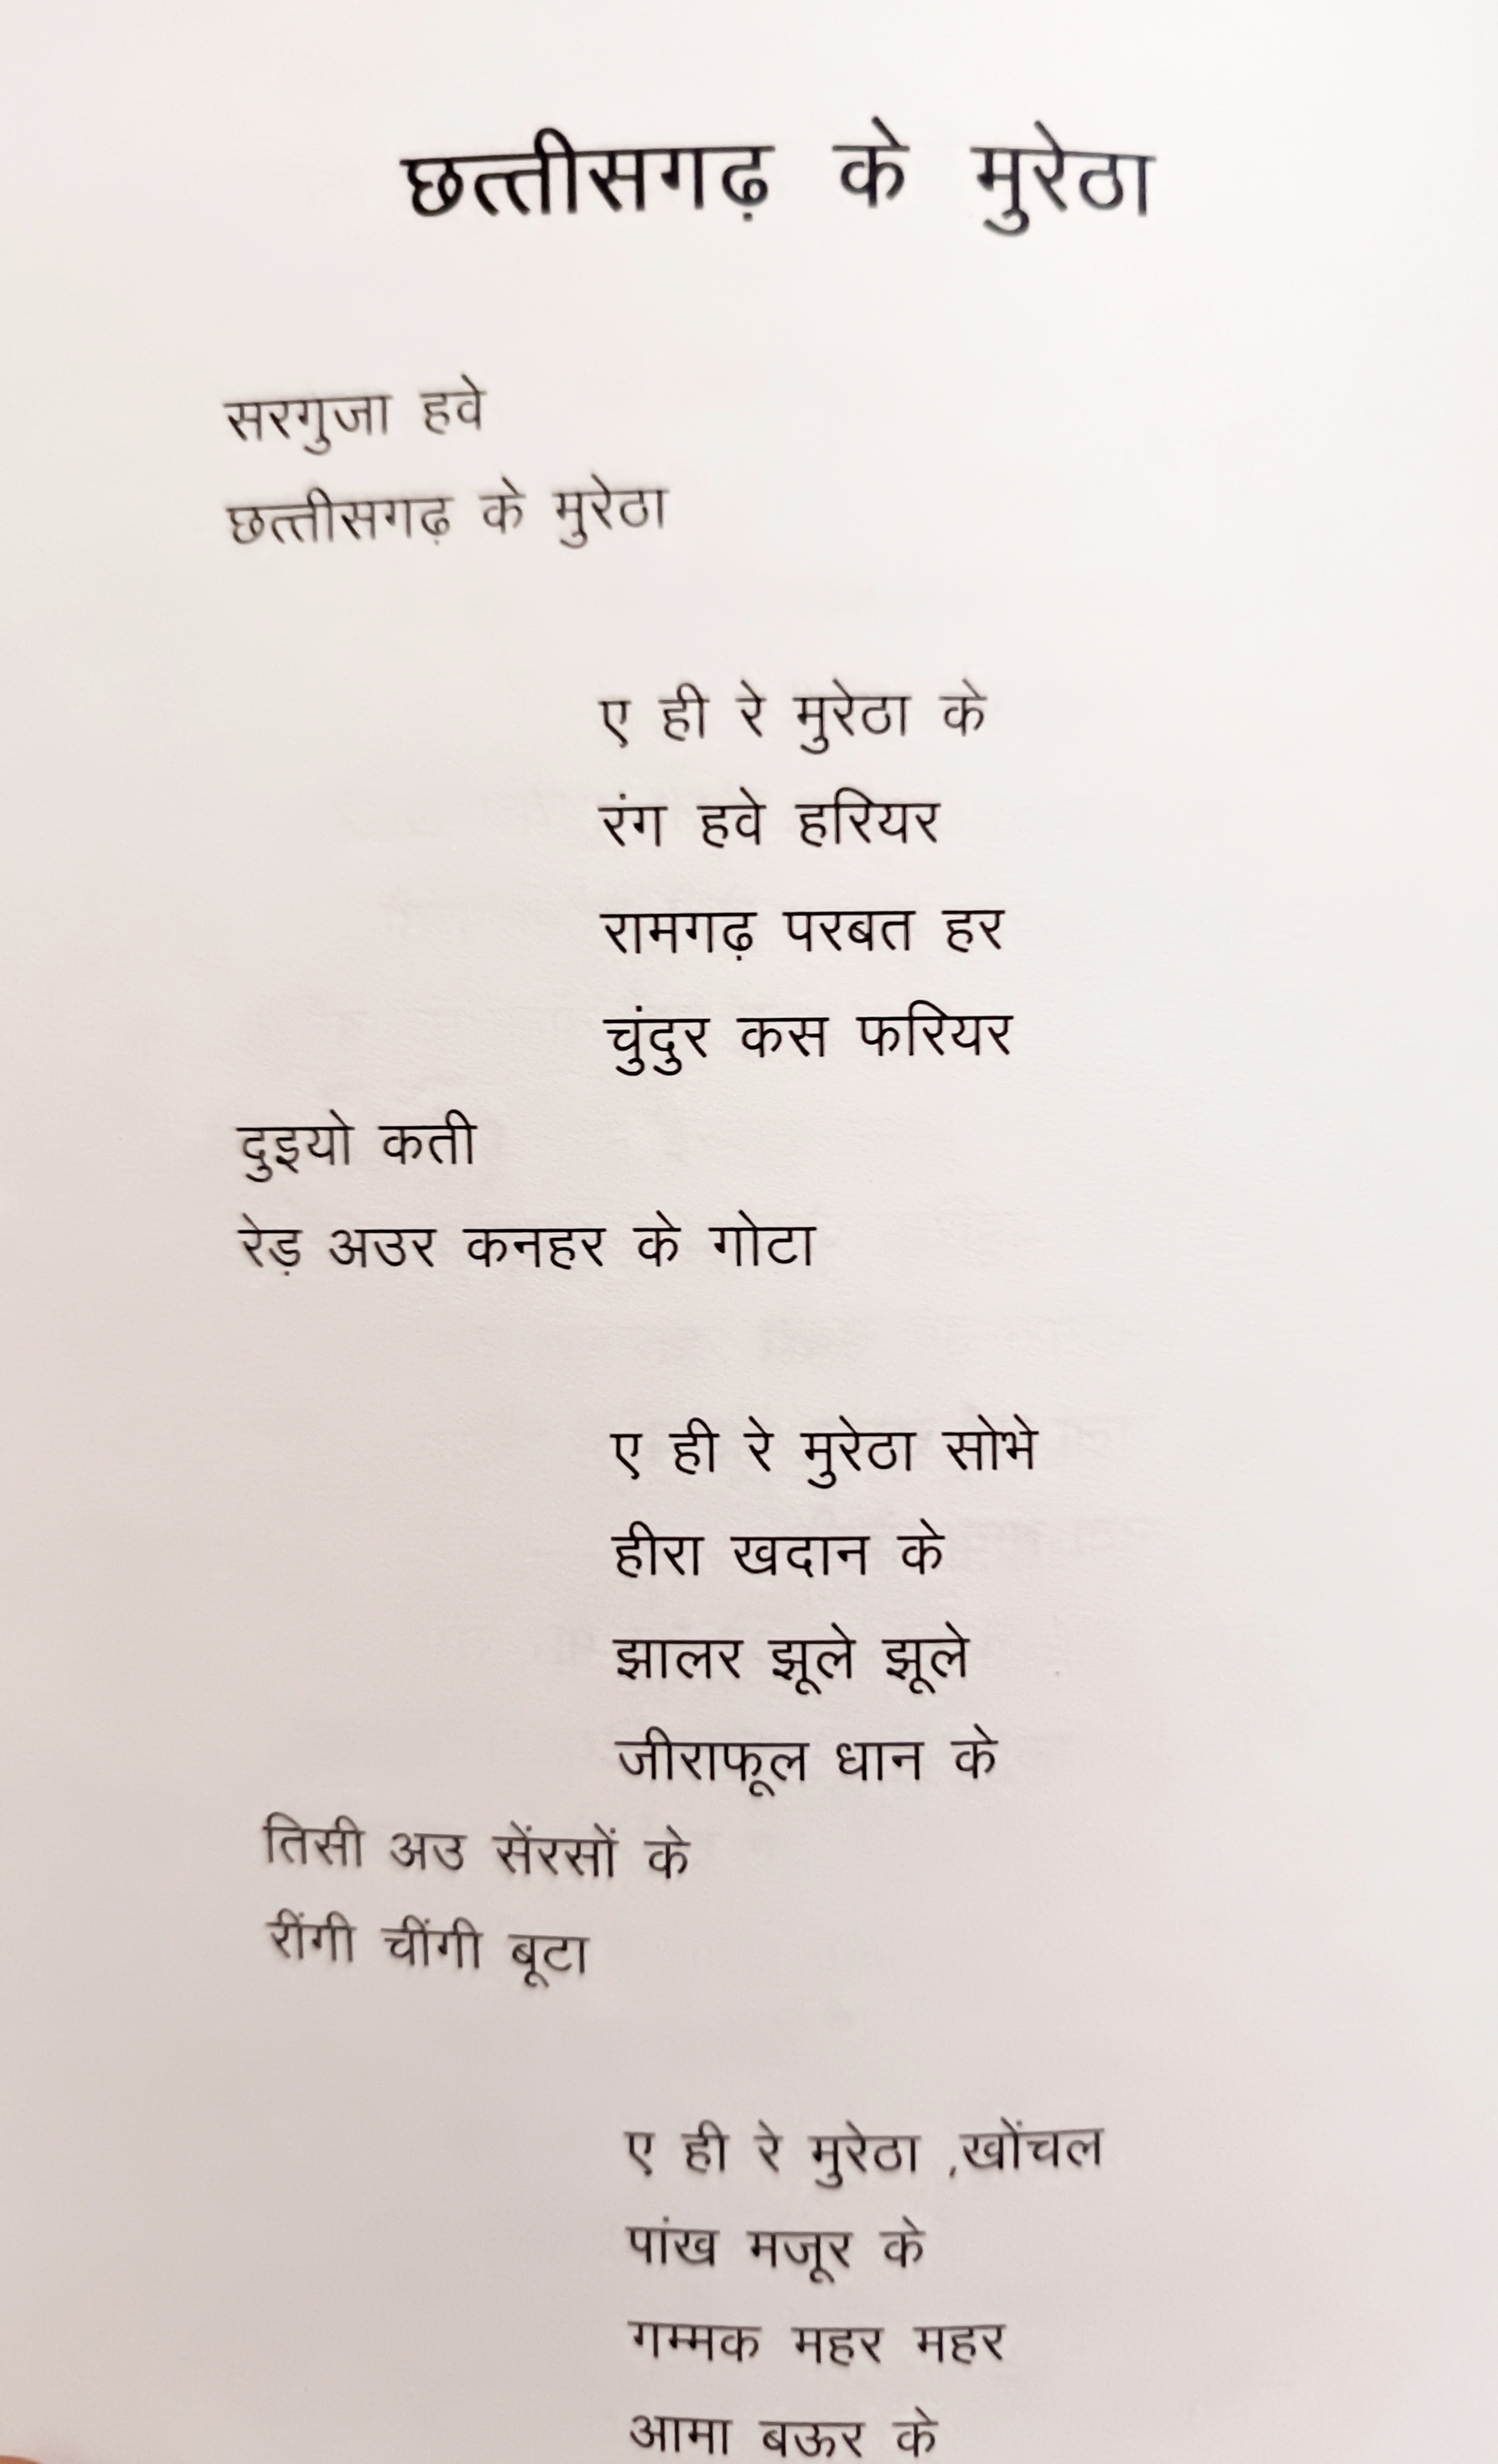 छत्तीसगढ़ के मुरेठा
सरगुजा हवे
छत्तीसगढ़ के मुरेठा
ए ही रे मुरेठा के
रंग हवे हरियर
रामगढ़ परबत हर
चुंदुर कस फरियर
दुइयो कती
रेड़ अउर कनहर के गोटा
ए ही रे मुरेठा सोभे
हीरा खदान के
झालर झूले झूले
जीराफूल धान के
तिसी अउ सेंरसों के
रींगी चींगी बूटा
ए ही रे मुरेठा ,खोंचल
पांख मजूर के
गम्मक महर महर
आमा बऊर के